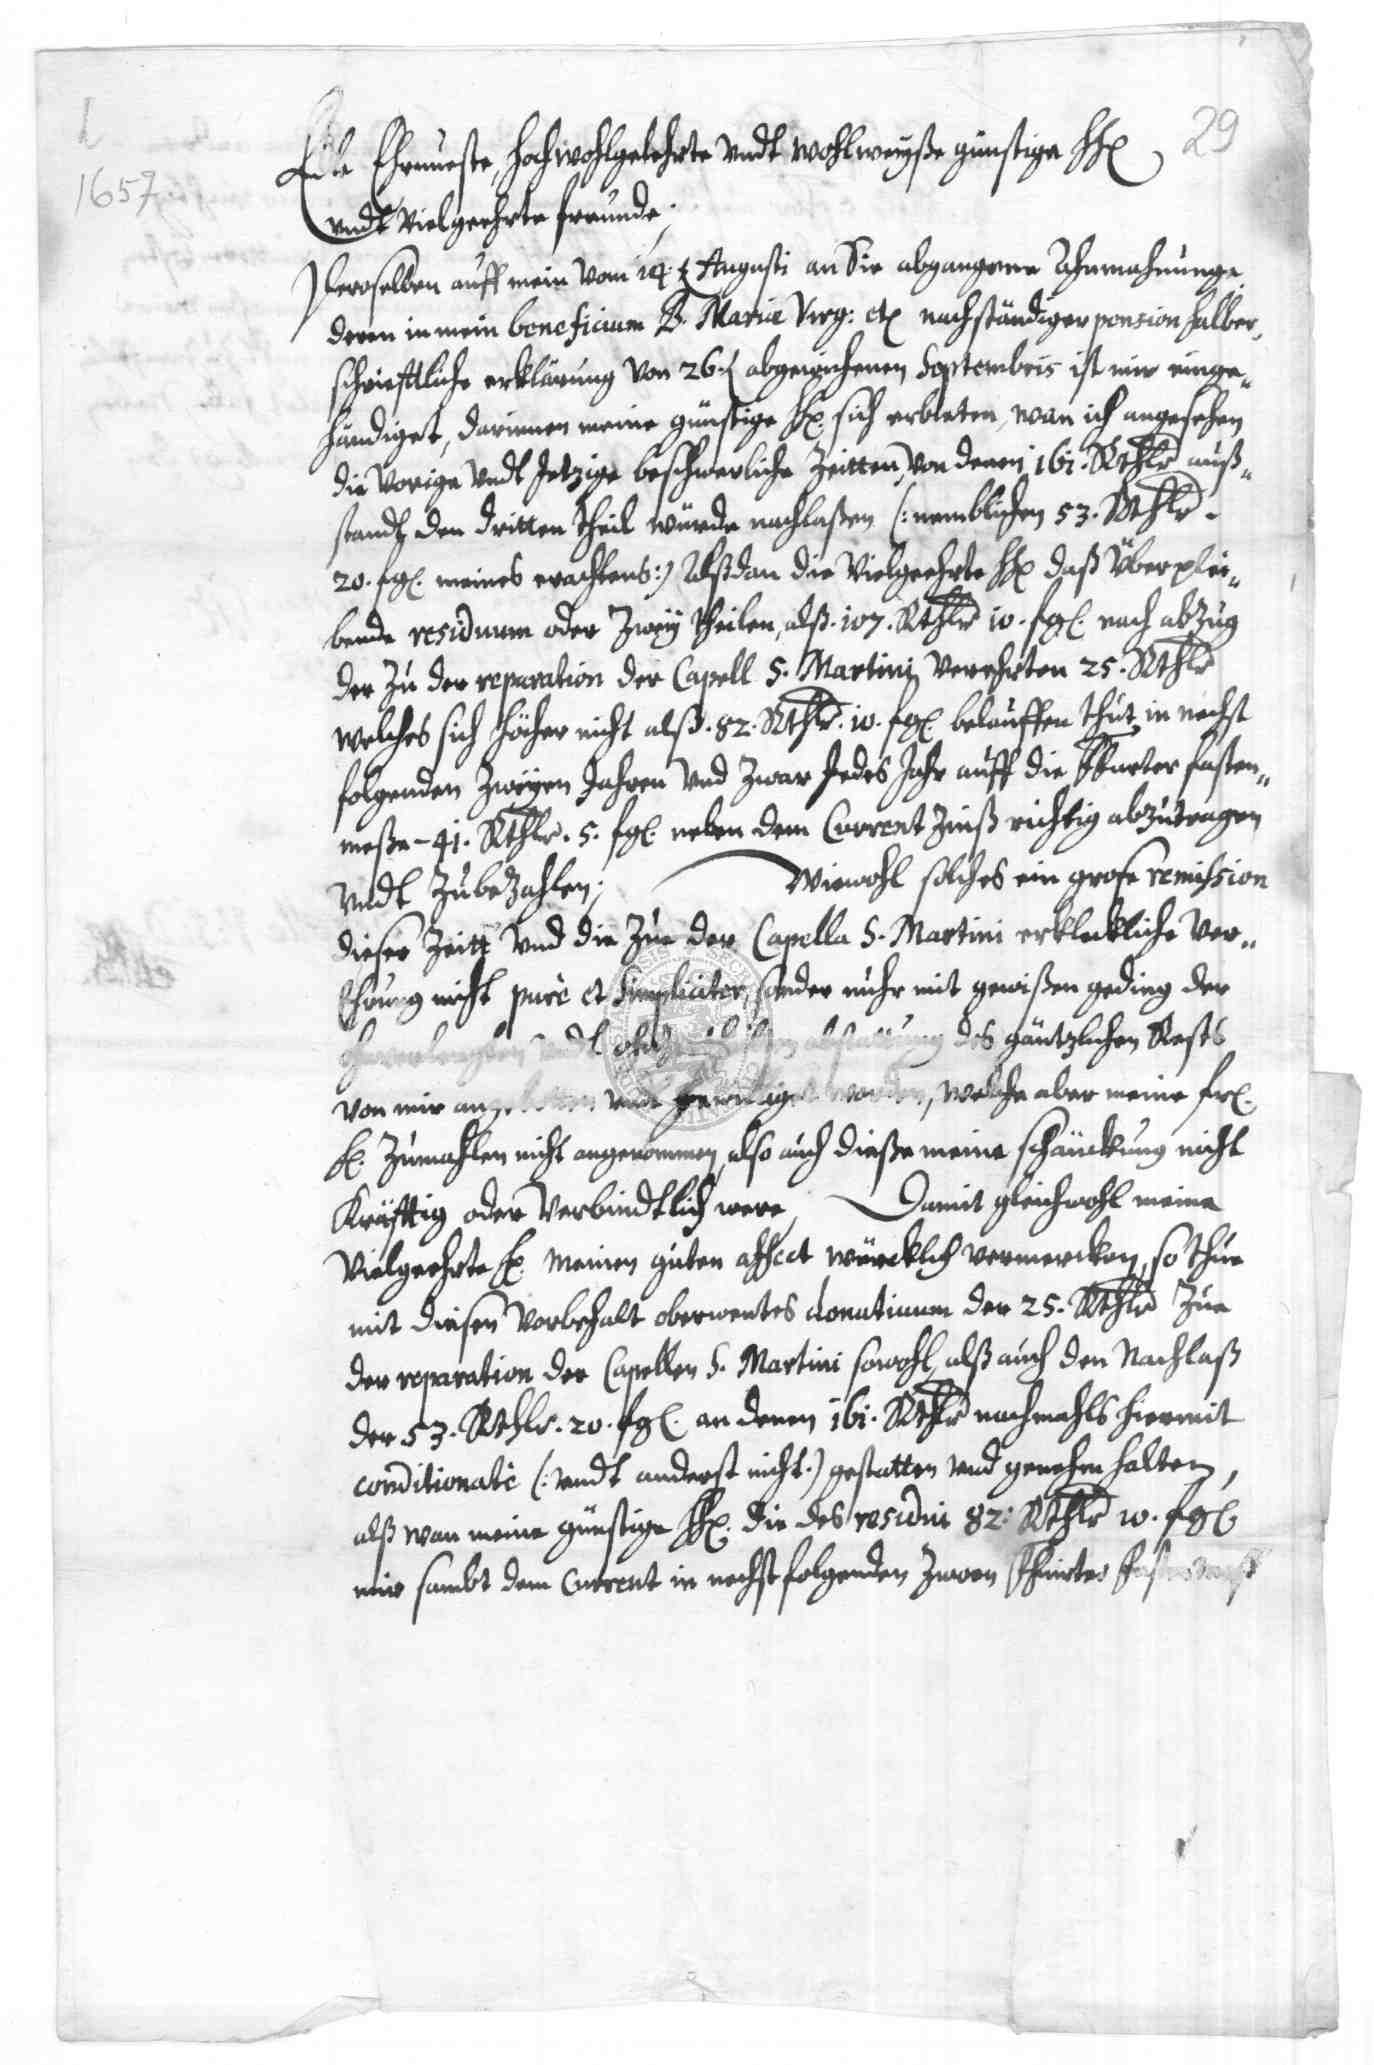 29
1657
Edle Ehrnueste, hochwohlgelehrte Vndt wohlweyße günstige HH
vndt Vielgeehrte freunde,
Deroselben auff mein vom 14. Augusti an Sie abgangene Ahnmahnunge
deren in mein beneficium B. Mariæ Virg: etc nachständiger pension halber,
schriefftliche erklärung von 26. abgewichenen Septembris ist mir einge„
händiget, darinnen meine günstige HH. sich erbieten, wan ich angesehen
die Vorige Vndt Jetzige beschwerliche Zeitten, von denen 161. Rthlr auß„
standt den dritten theil würde nachlaßen (: nemblichen 53. Rthlr.
20. sgl. meines erachtens:) Alßdan die Vielgeehrte HH daß Überplei„
bende residuum oder Zwey theilen, alß. 107. Rthlr 10. sgl. nach abzug
der Zu der reparation der Capell S. Martini verehrten 25. Rthlr
welches sich höcher nicht alß. 82. Rthlr. 10. sgl. belauffen thut, in nechst
folgenden Zweyen Jahren Vnd Zwar Jedes Jahr auff die fasten„
meße - 41. Rthlr. 5. sgl. neben dem Current Zinß richtig abzutragen
Vndt Zubezahlen; Wiewohl solches ein grose remission
dieser Zeitt Vnd die Zue der Capella S. Martini erkleckliche Ver„
Ehrung nicht purè et Simpliciter, sonder nuhr mit gewißen geding der
Vndt abstattung des gäntzlichen Rests
von mir angebotten vndt worden, welche aber meine
H. Zumahlen nicht angenommen, also auch dieße meine schänckung nicht
Kräfftig oder Verbindtlich were, Damit gleichwohl meine
Vielgeehrte H. meinen guten affect würcklich vermercken, so thue
mit diesen Vorbehalt oberwentes donativum der 25. Rthlr Zue
der reparation der Capellen S. Martini sowohl, alß auch den Nachlaß
der 53. Rthlr. 20. sgl. an denen 161. Rthlr nachmahls hiermit
conditionatè (: Vndt anderst nicht:) gestatten Vnd genehm halten,
alß wan meine günstige HH. die des residui 82: Rthlr 10. sgl
mir sambt dem Current in nechstfolgenden Zween